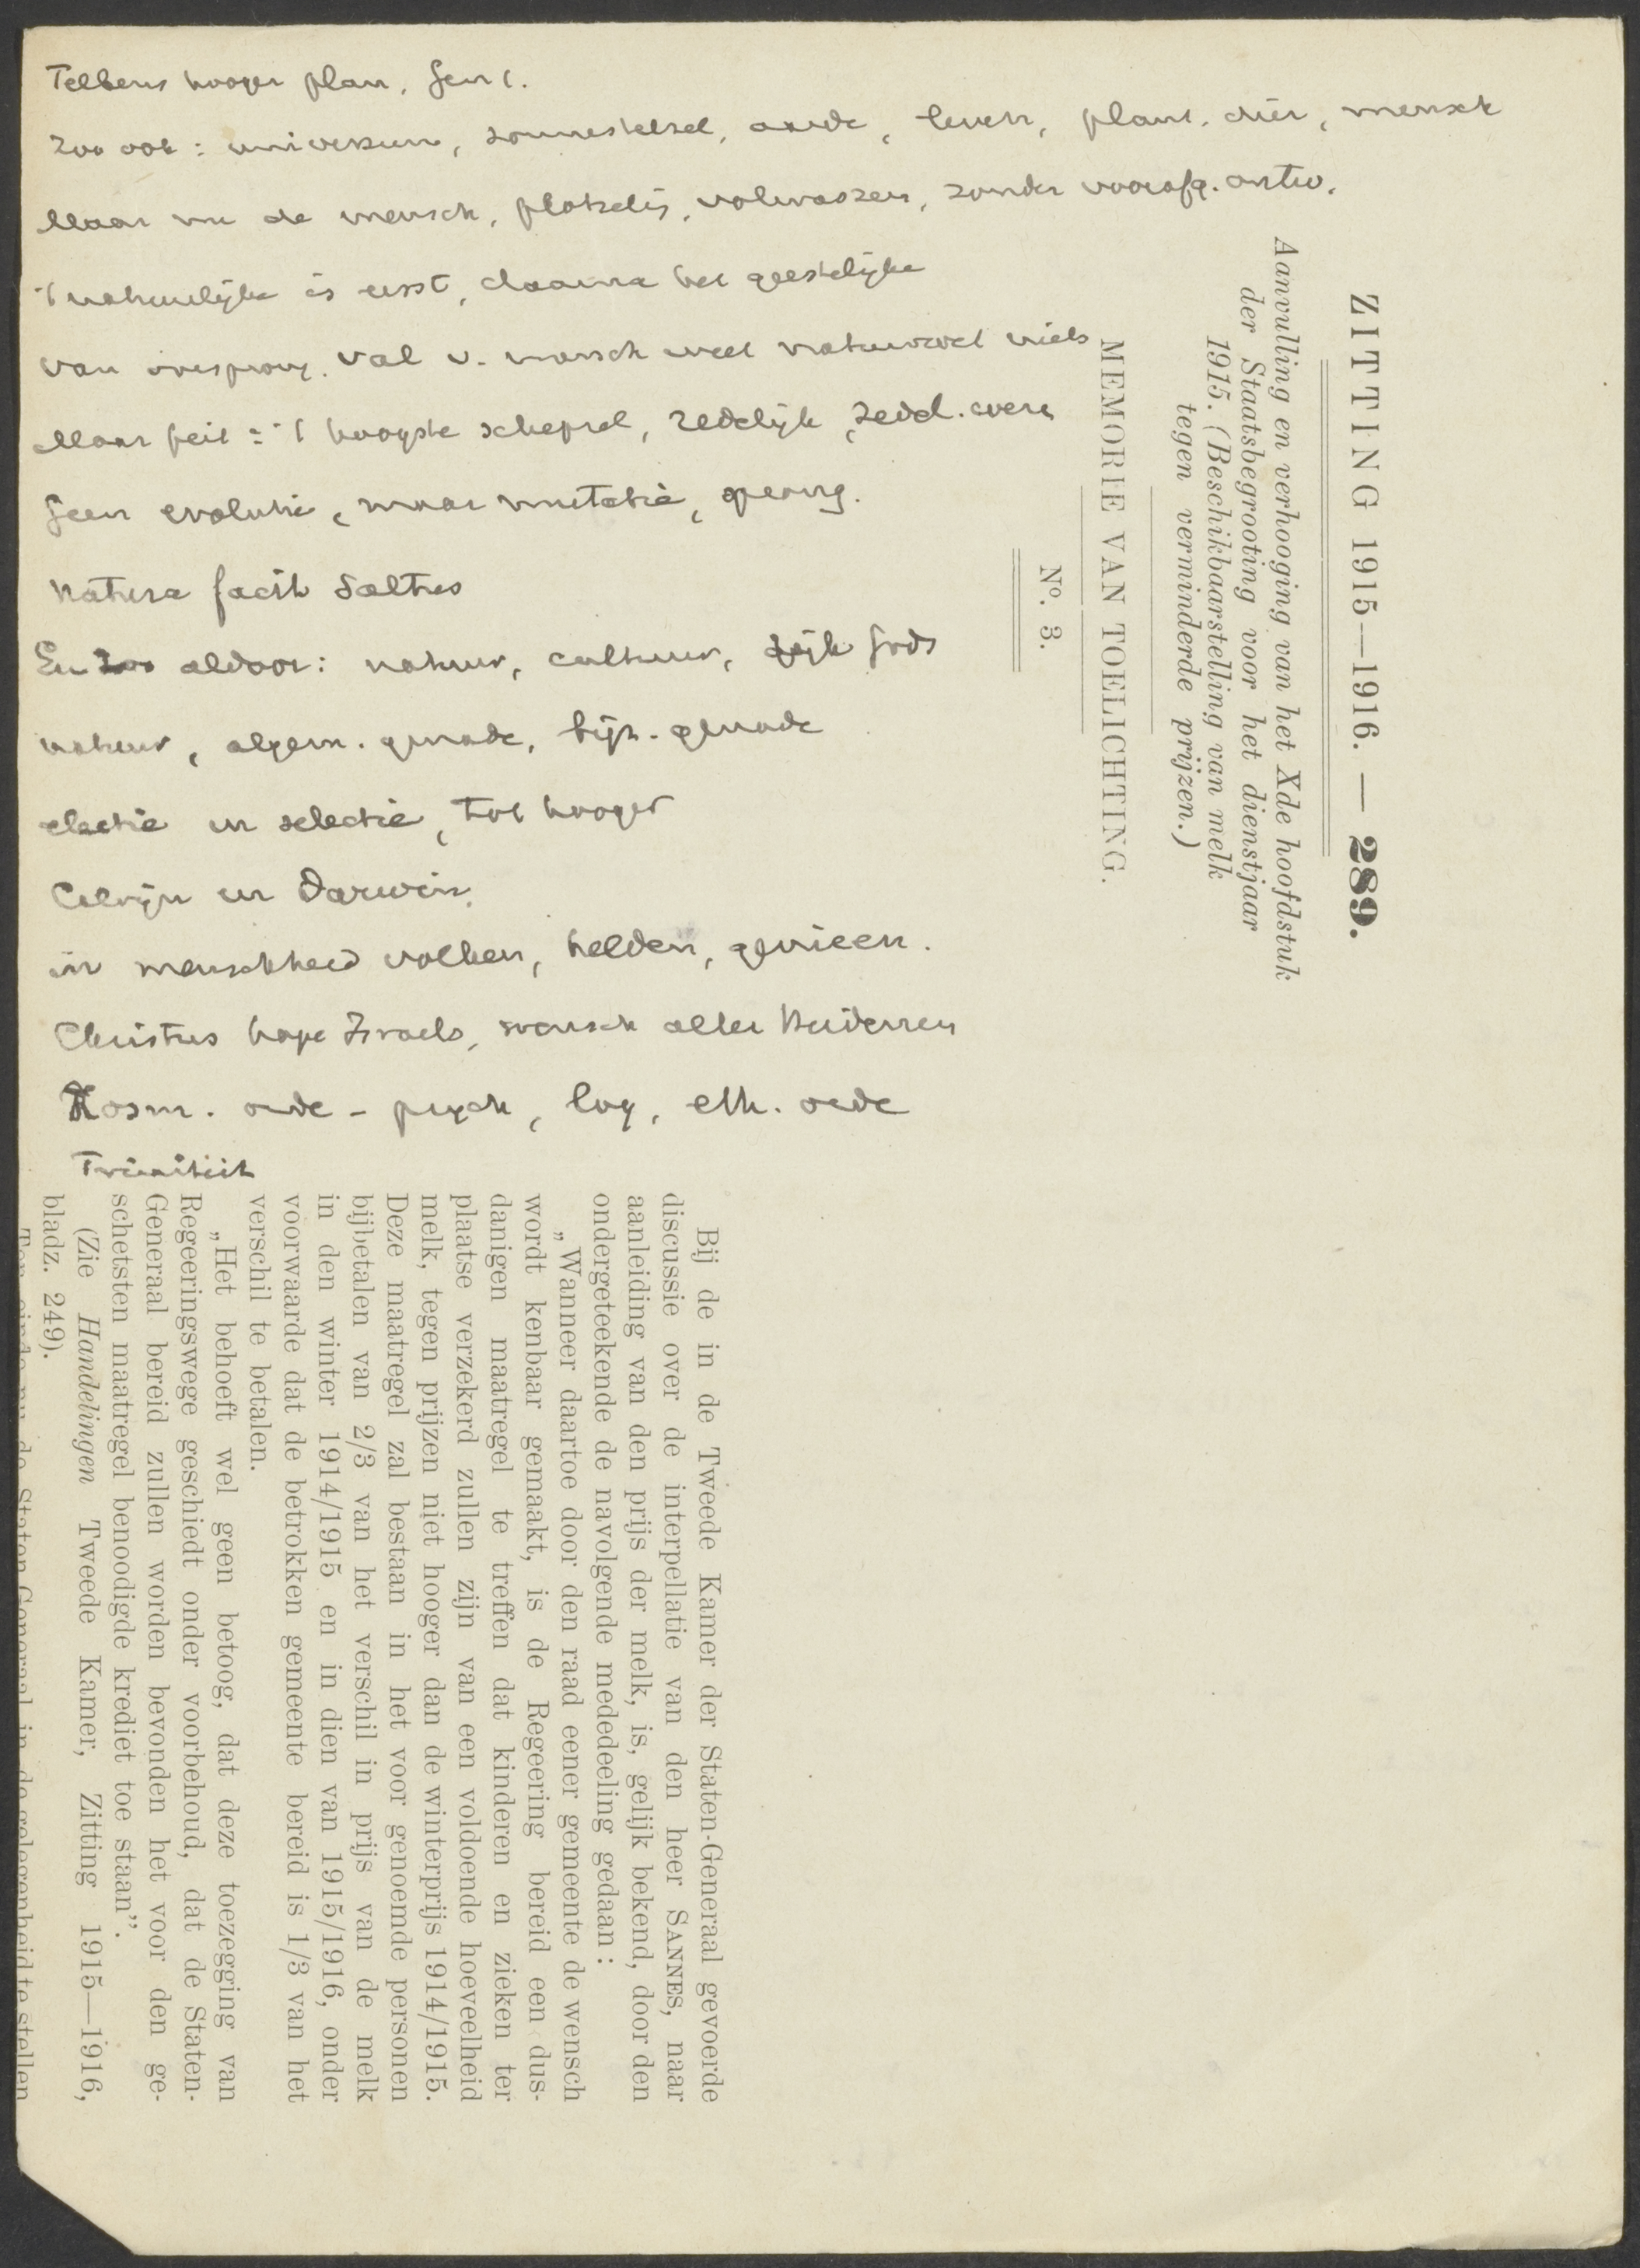 Telkens hooger plan, Gen 1.
Zoo ook: universum, zonnestelsel, aarde, leven, plant, dier, mensch
Maar nu de mensch, plotselij, volwassen, zonder voorafg. ontw.
't natuurlijke is eerst, daarna het geestelijke
van oorsprong. Val v. mensch weet natuurwet niets
Maar feit = 't hoogste schepsel, redelijk, zedel.
Geen evolutie, maar mutatie, sprong.
Natura facit Saltus
En zoo aldoor: natuur, cultuur, rijk Gods
natuur, algem. genade, bijz. genade
electie en selectie, tot hooger
Calvijn en Darwin.
in menschheid volken, helden, genieen.
Christus hope Israels, wensch aller Heidenen
Kosm. orde - psych, log, eth. orde
Triniteit
ZITTING 1915—1916. — 289.
Aanvulling en verhooging van het Xde hoofdstuk
der Staatsbegrooting voor het dienstjaar
1915. (Beschikbaarstelling van melk
tegen verminderde prijzen.)
MEMORIE VAN TOELICHTING.
N°. 3.
Bij de in de Tweede Kamer der Staten-Generaal gevoerde
discussie over de interpellatie van den heer SANNES, naar
aanleiding van den prijs der melk, is, gelijk bekend, door den
ondergeteekende de navolgende mededeeling gedaan:
„Wanneer daartoe door den raad eener gemeente de wensch
wordt kenbaar gemaakt, is de Regeering bereid een dus-
danigen maatregel te treffen dat kinderen en zieken ter
plaatse verzekerd zullen zijn van een voldoende hoeveelheid
melk, tegen prijzen niet hooger dan de winterprijs 1914/1915.
Deze maatregel zal bestaan in het voor genoemde personen
bijbetalen van 2/3 van het verschil in prijs van de melk
in den winter 1914/1915 en in dien van 1915/1916, onder
voorwaarde dat de betrokken gemeente bereid is 1/3 van het
verschil te betalen.
„Het behoeft wel geen betoog, dat deze toezegging van
Regeeringswege geschiedt onder voorbehoud, dat de Staten-
Generaal bereid zullen worden bevonden het voor den ge-
schetsten maatregel benoodigde krediet toe staan”.
(Zie Handelingen Tweede Kamer, Zitting 1915—1916,
bladz. 249).
Ten einde nu de Staten-Generaal in de gelegenheid te stellen